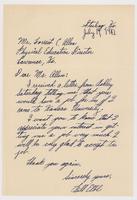 July 19, 1941
Mr. Forrest C. Allen
Physical Education Director
Lawrence, Ks.
Dear Mr. Allen:
I received a letter from
Saturday telling me that you
would have a job for me if I
came to Kansas University.
I want you to know that I
appreciate your interest in
me a job very much. I
will be very glad to accept the
job.
Thank you again,
Sincerely yours,
Bill